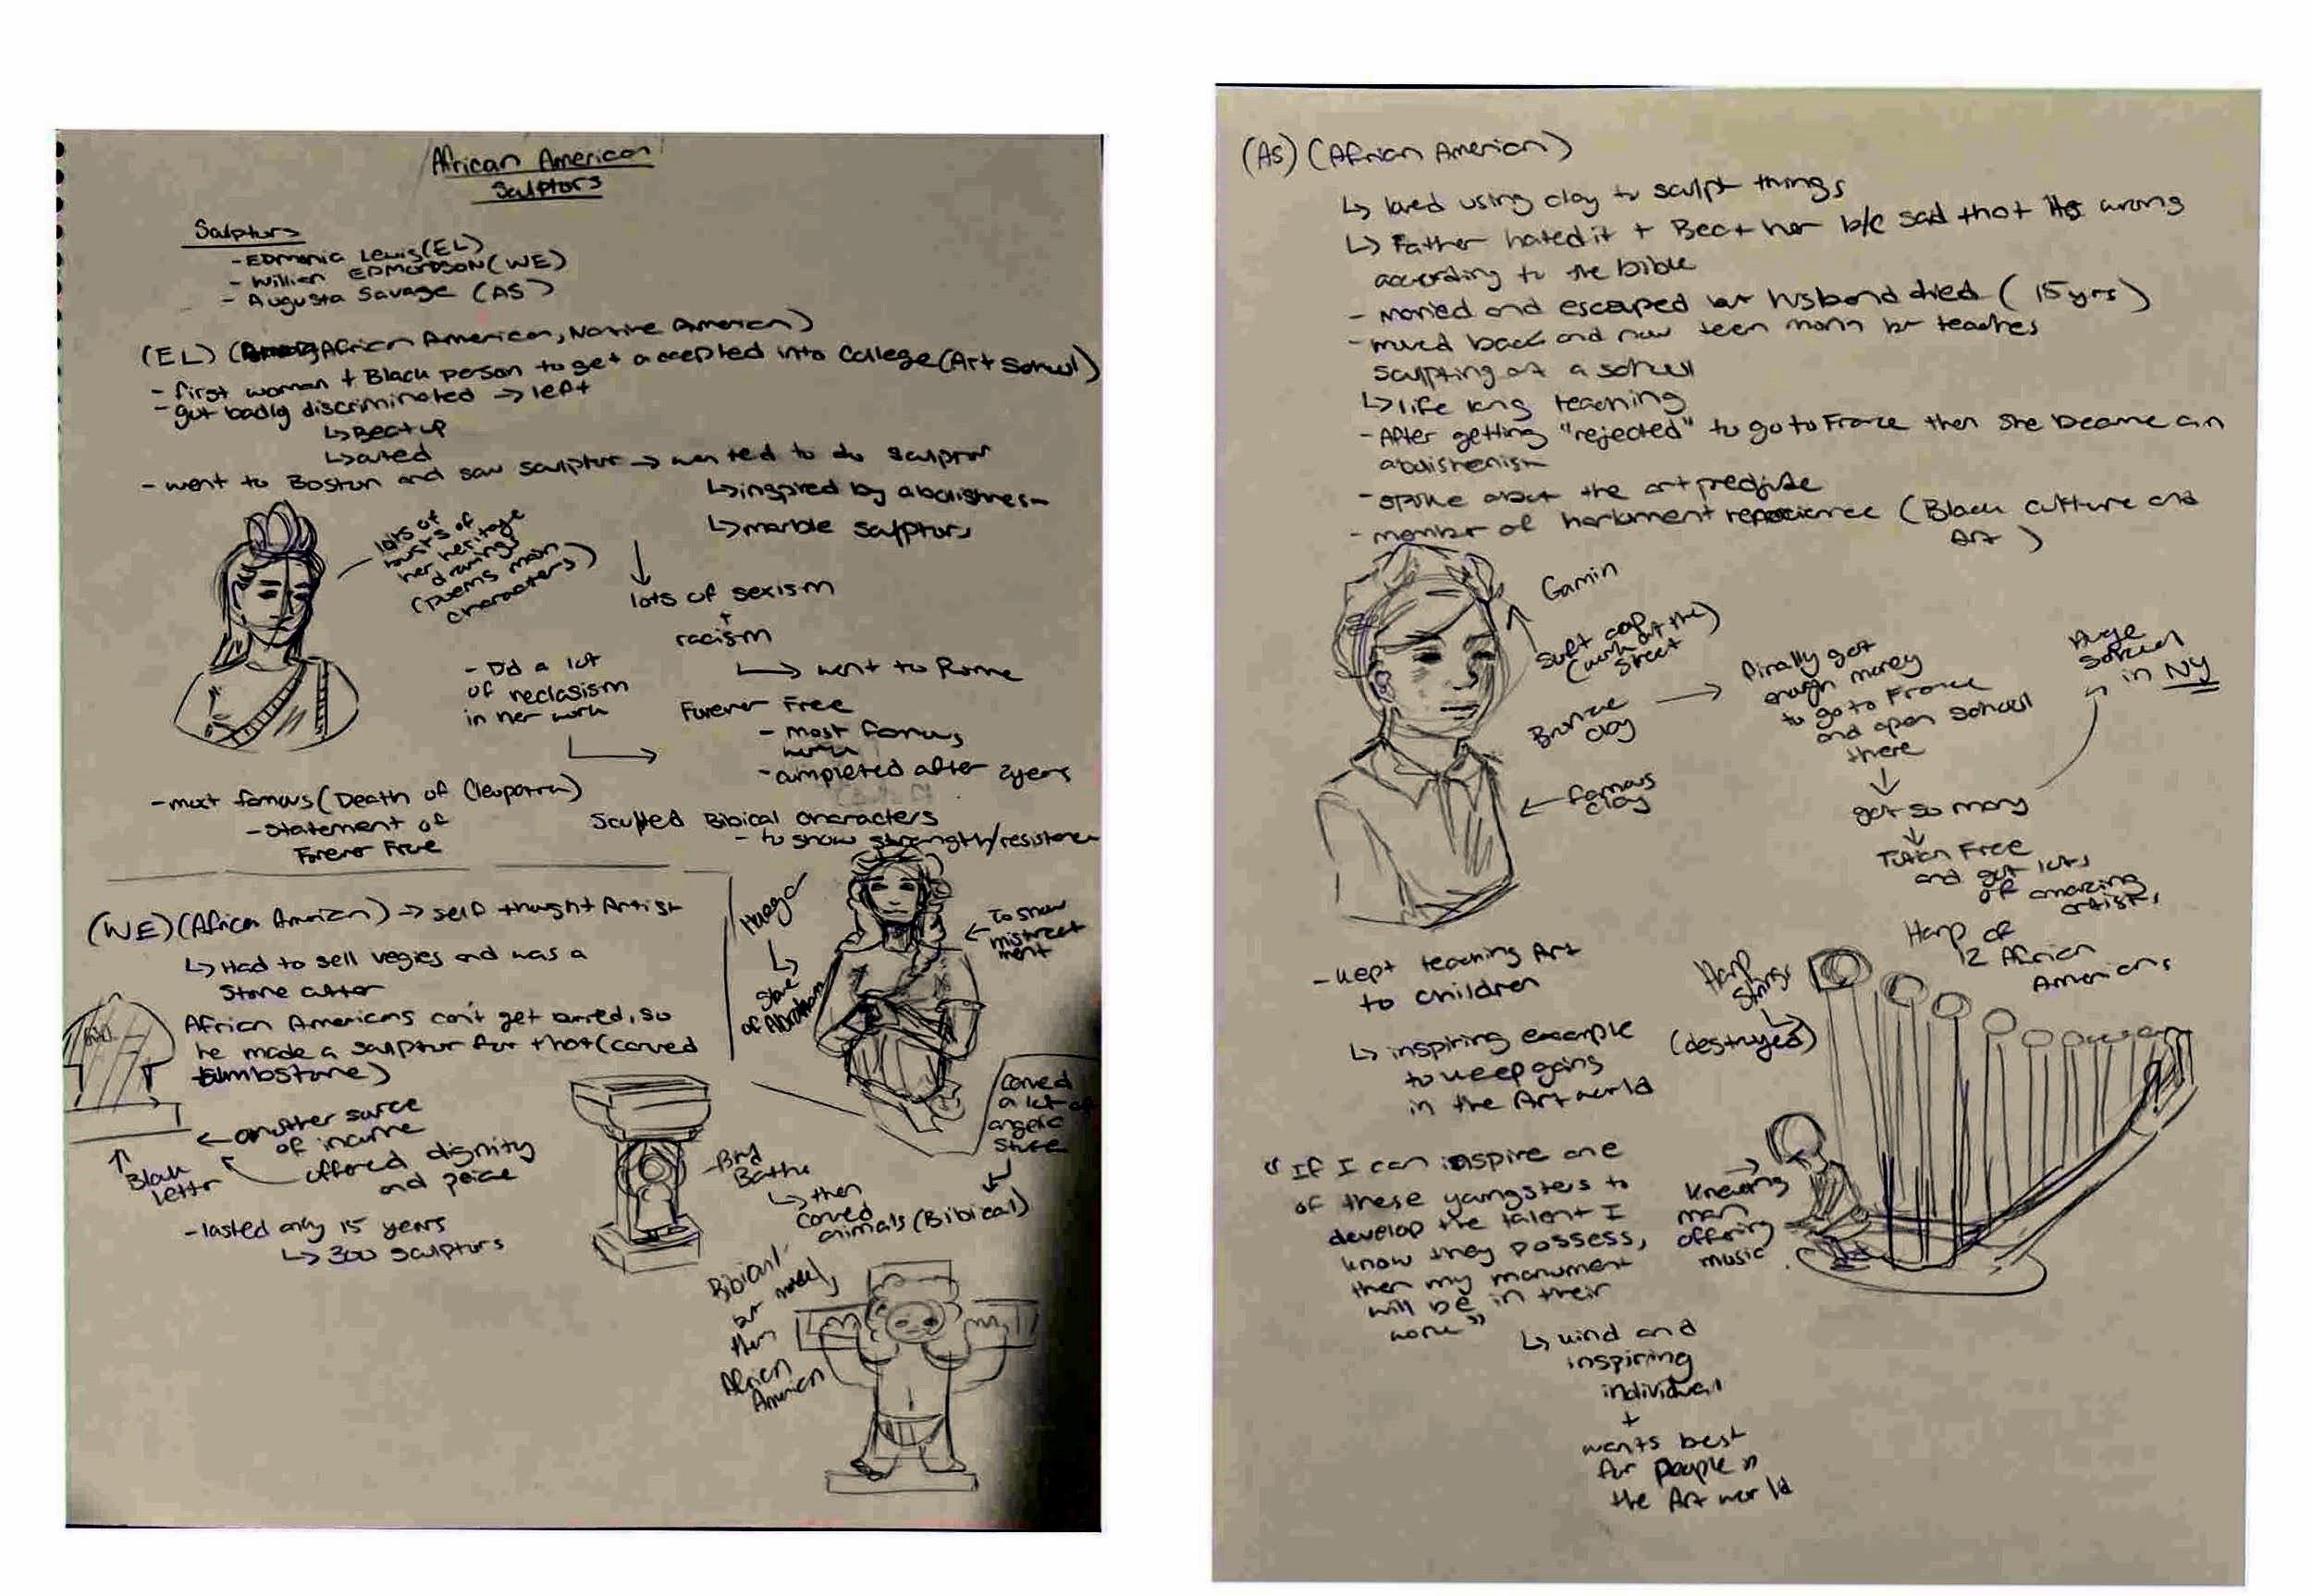 African American
Sculptors
Sculpturs
- EDmonia Lewis (EL)
- Willian EDMONDSON (WE)
- Augusta Savage (AS)
(EL) (African American, Native American)
- first woman + Black person to get accepted into College (Art School)
- got badly discriminated → left
↳ Beat up
- went to Boston and saw sculptur → wanted to do sculptur
↳ inspired by
↳ marble sculpturs
lots of
busts of
her heritage
drawings
(poems main
characters)
↓
lots of sexism
+
racism
→ went to Rome
- Did a lot
of neclasism
in her work
Forever Free
- most famous
work
- completed after 2yers
- most famous (Death of Cleopatra)
- statement of
Forever Free
Sculpted Bibical characters
- to show strength/resistence
(WE) (African American) → self thought Artist
↳ Had to sell vegies and was a
Stone cutter
African Americans can't get burred, so
he made a sculptur for that (carved
tumbstone)
Hagar
↳ slave
of Abraham
← To show
mistreat
ment
← another source
of income
offered dignity
and peice
↑
Blauk
letter
- lasted only 15 years
↳ 300 sculpturs
- Bird
Baths
↳ then
carved
animals (Bibical)
Carved
a lot of
angelic
stuff
Bibical
but
then
African
American
(AS) (African American)
↳ loved using clay to sculpt things
↳ Father hated it + Beat her b/c said that its wrong
according to the bible
- maried and escaped but husband died (15 yrs)
- moved back and now teen mom but teaches
sculpting at a school
↳ life long teaching
- After getting "rejected" to go to France then she became an
- spoke about the art predjuice
- member of (Black culture and
Art)
Gamin
Soft cap
(work at the
street)
Bronze
clay
← famous
clay
→ finally got
enough money
to go to France
and open school
there
↓
got so many
↓
Tution Free
and got lots
of amazing
artists
Huge
school
in NY
- kept teaching Art
to children
↳ inspiring example
to keep going
in the Art world
Harp of
12 African
Americans
Harp
strings
(destroyed)
Kneeling
man
offering
music
"If I can inspire one
of these youngsters to
develop the talent I
know they possess,
then my monument
will be in their
work"
↳ kind and
inspiring
individual
+
wants best
for people in
the Art world